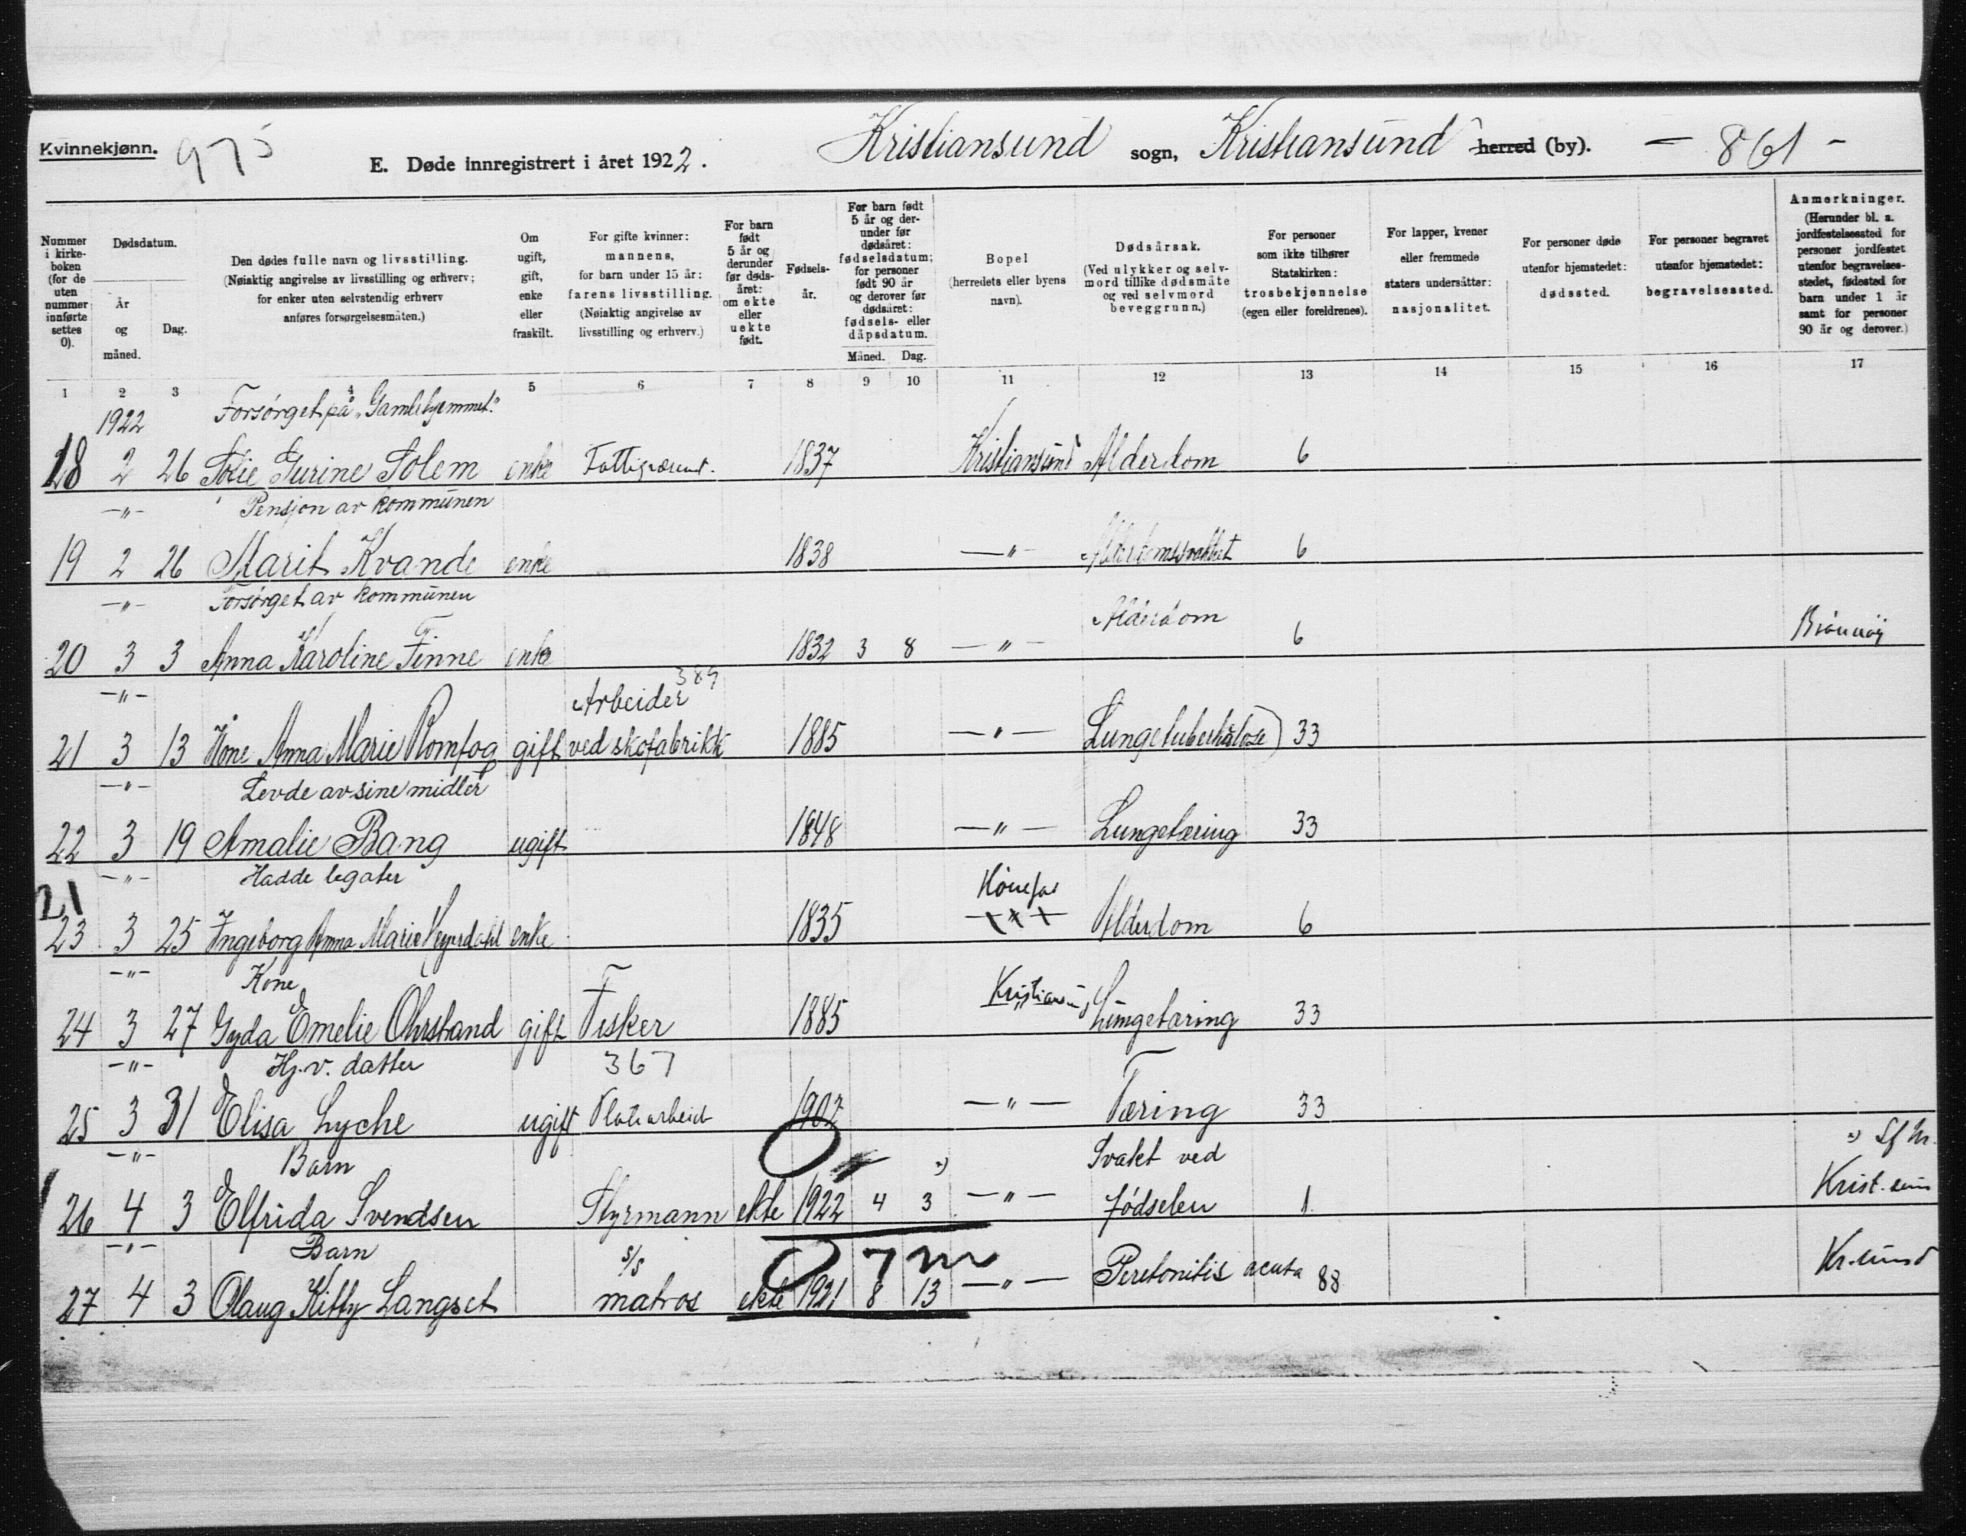 Kvinnekjønn. 975 E. Døde innregistrert i året 1922. Kristiansund sogn, Kristiansund herred (by). — 861 —
Nummer i kirkeboken (for de uten nummer innførte settes 0).
Dødsdatum.
År og måned.
Dag.
Den dødes fulle navn og livsstilling.
(Nøiaktig angivelse av livsstilling og erhverv; for enker uten selvstendig erhverv anføres forsørgelsesmåten.)
Om ugift, gift, enke eller fraskilt.
For gifte kvinner: mannens, for barn under 15 år: farens livsstilling.
(Nøiaktig angivelse av livsstilling og erhverv.)
For barn født 5 år og derunder før dødsåret: om ekte eller uekte født.
Fødselsår.
For barn født 5 år og derunder før dødsåret: fødselsdatum; for personer født 90 år og derover før dødsåret: fødsels- eller dåpsdatum.
Måned. Dag.
Bopel
(herredets eller byens navn).
Dødsårsak.
(Ved ulykker og selvmord tillike dødsmåte og ved selvmord beveggrunn.)
For personer som ikke tilhører Statskirken: trosbekjennelse (egen eller foreldrenes).
For lapper, kvener eller fremmede staters undersåtter: nasjonalitet.
For personer døde utenfor hjemstedet: dødssted.
For personer begravet utenfor hjemstedet: begravelsessted.
Anmerkninger.
(Herunder bl. a. jordfestelsessted for personer jordfestet utenfor begravelsesstedet, fødested for barn under 1 år samt for personer 90 år og derover.)
1 2 3 4 5 6 7 8 9 10 11 12 13 14 15 16 17
1922 Forsørget på „Gamlehjemmet."
18 2 26 Gurine Solem enke 1837 Kristiansund Alderdom 6
—"— Pensjon av kommunen
19 2 26 Marit Kvande enke 1838 —"— 6
—"— Forsørget av kommunen
20 3 3 Anna Karoline Finne enke 1832 3 8 —"— Alderdom 6
—"— Arbeider 389
21 3 13 Anna Marie Romfog gift ved skofabrikk 1885 —"— Lungetuberkulose) 33
—"— Levde av sine midler
22 3 19 Amalie Bang ugift 1848 —"— Lungetæring 33
—"— Hadde legater
21
23 3 25 Ingeborg Anna Marie enke 1835 Alderdom 6
—"— Kone
24 3 27 Gyda Emelie Ohrstrand gift Fisker 1885 Lungetæring 33
—"— Hj. v. datter 367
25 3 31 Elisa Lyche ugift 1907 —"— Tæring 33
—"— Barn Svakt ved
26 4 3 Elfrida Svendsen Styrmann ekte 1922 4 3 —"— fødselen 1 Krist.sund
—"— Barn s/s 0 7 m
27 4 3 Olaug Kitty Langset matros ekte 1921 8 13 —"— Peretonitis acuta 88 Kr.sund